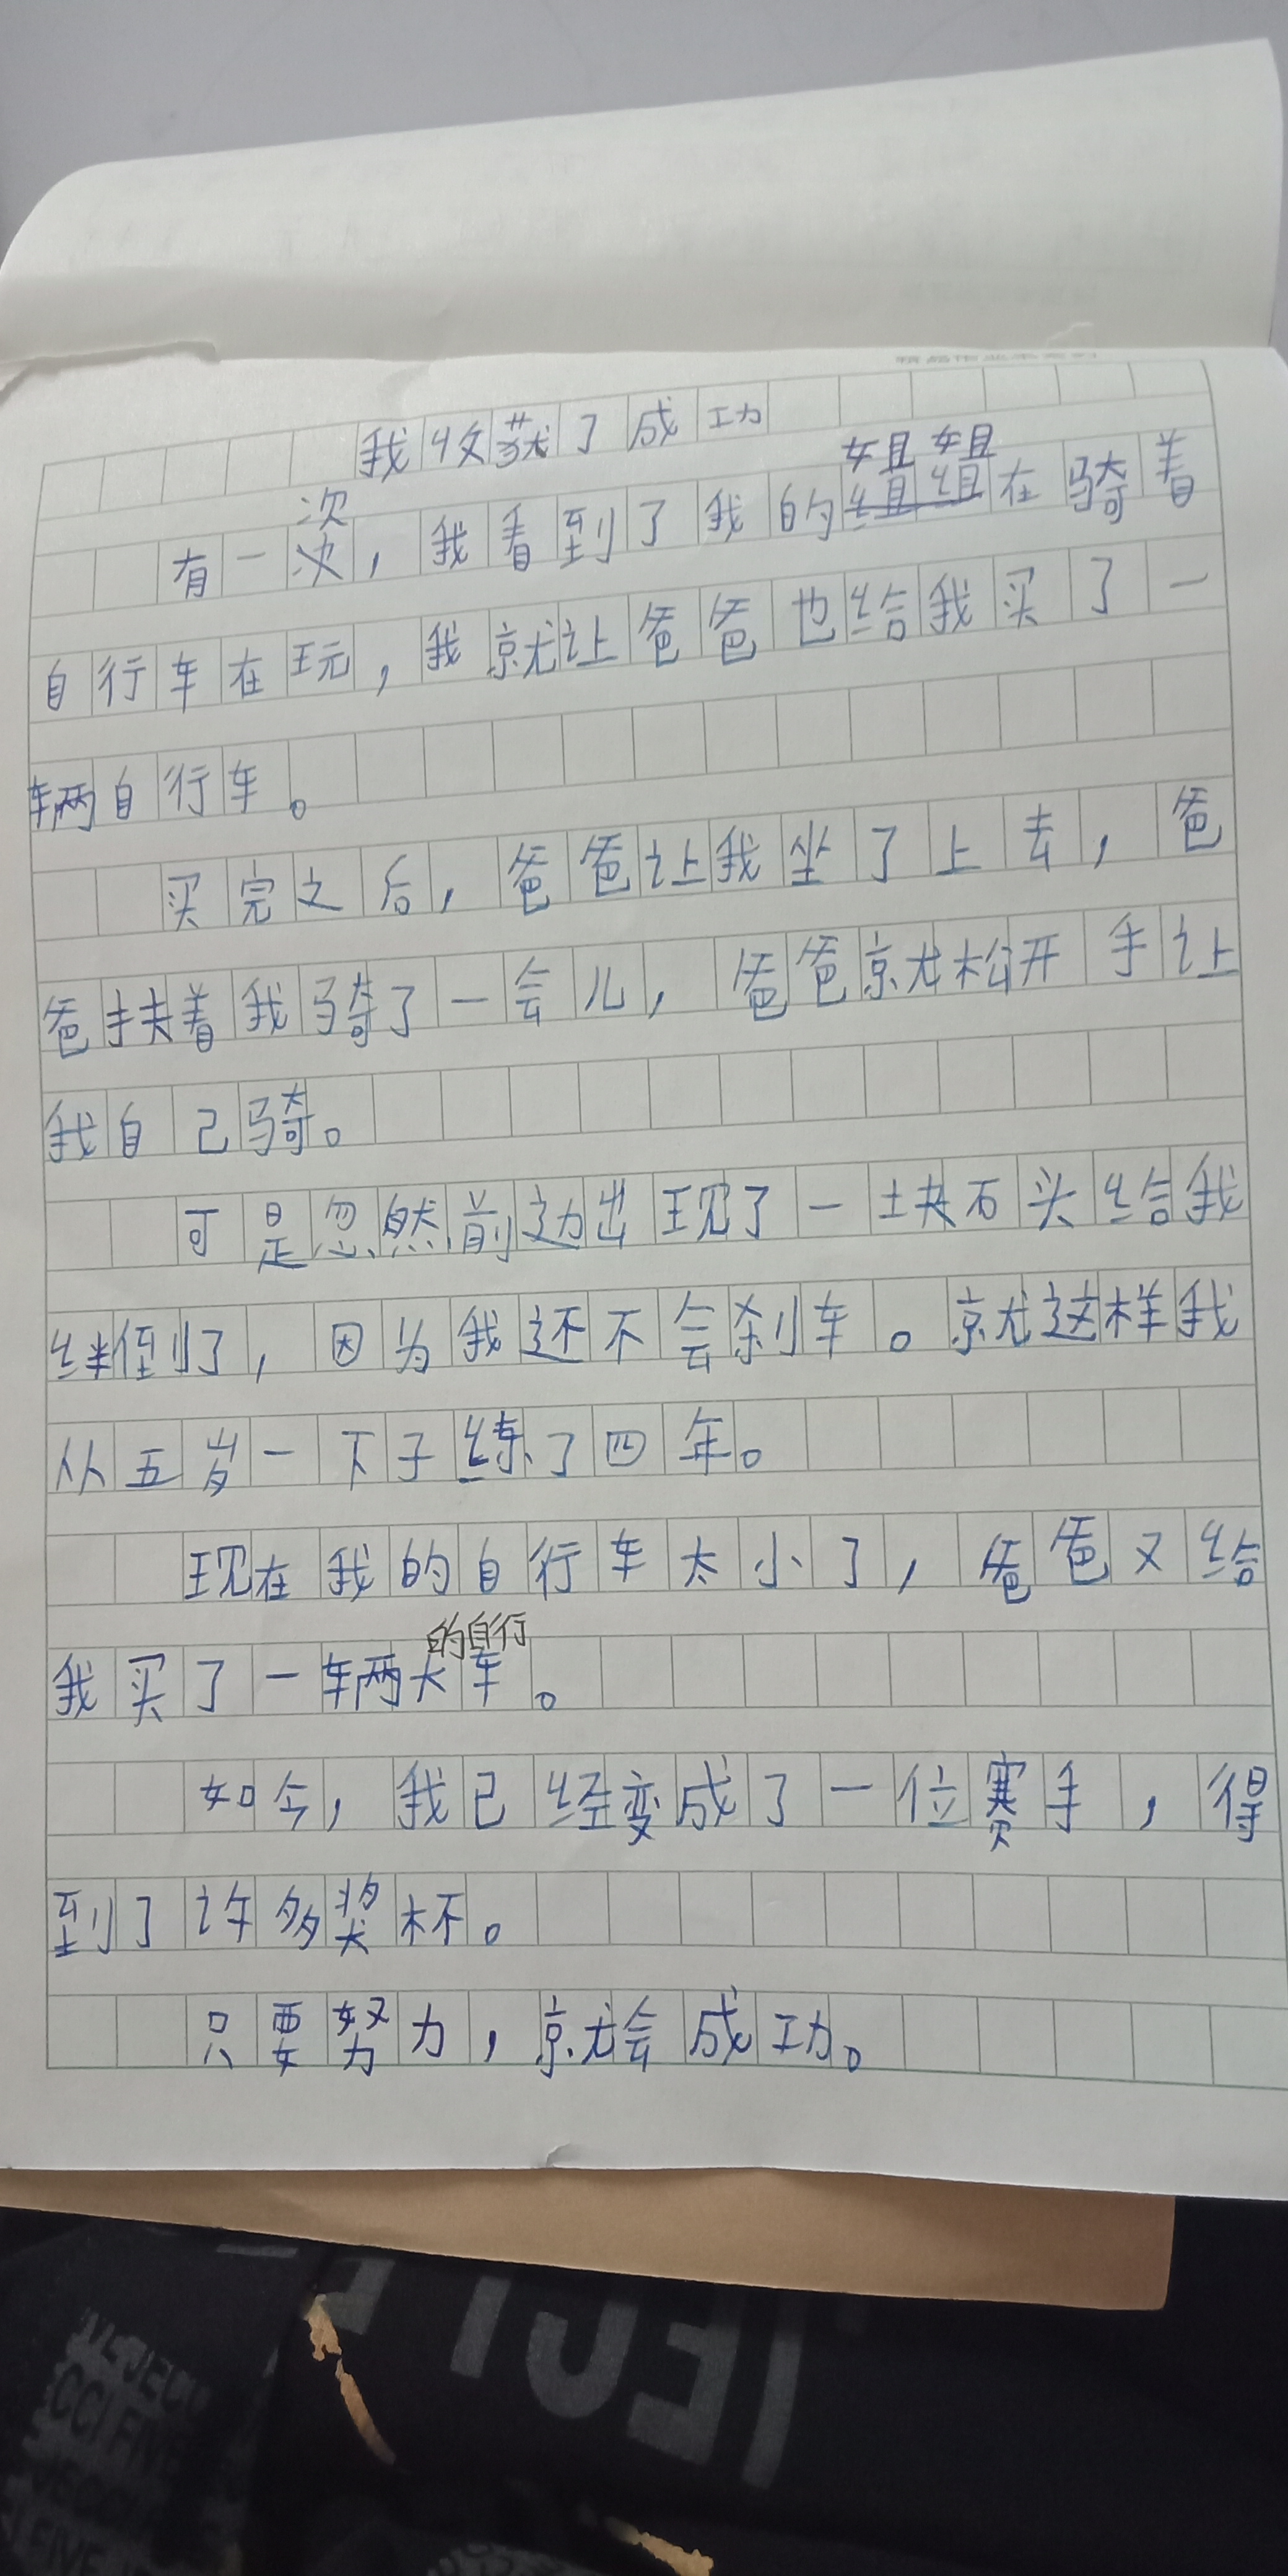 我收获了成功
次
姐姐
有一次，我看到了我的组组在骑着
自行车在玩，我就让爸爸也给我买了一
辆自行车。
买完之后，爸爸让我坐了上去，爸
爸扶着我骑了一会儿，爸爸就松开手让
我自己骑。
可是忽然前边出现了一块石头给我
绊倒了，因为我还不会刹车。就这样我
从五岁一下子练了四年。
现在我的自行车太小了，爸爸又给
的自行
我买了一辆大车。
如今，我已经变成了一位赛手，得
到了许多奖杯。
只要努力，就会成功。